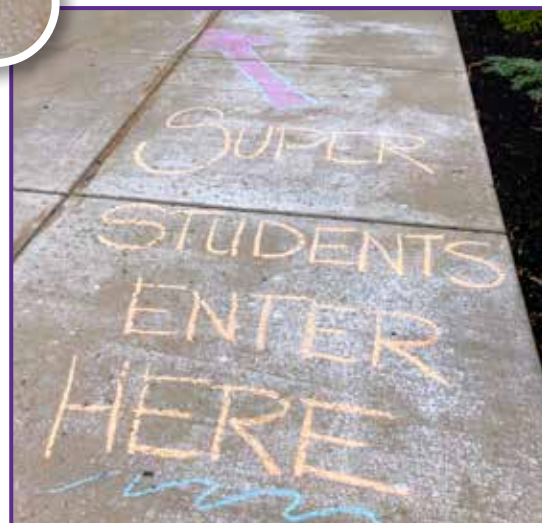 SUPER
STUDENTS
ENTER
HERE